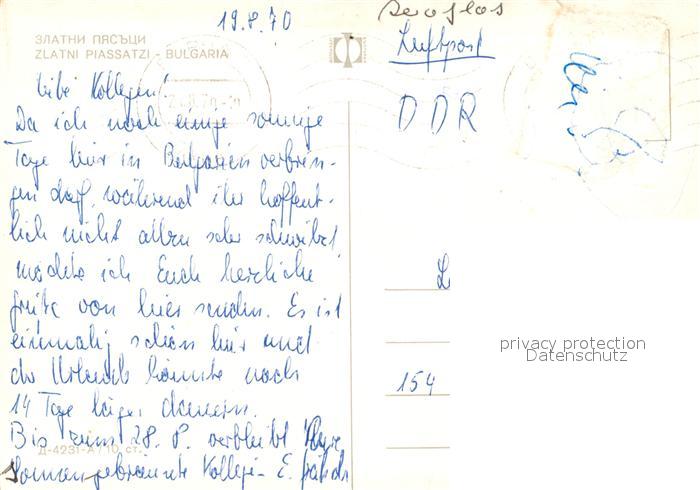 19.8.70
ЗЛАТНИ ПЯСЪЦИ
ZLATNI PIASSATZI - BULGARIA
Luftpost
DDR
Liebe Kollegen!
Da ich noch einige sonnige
Tage hier in Bulgarien verbrin-
gen darf, während ihr hoffent-
lich nicht allzu sehr schwitzt,
möchte ich Euch herzliche
Grüße von hier senden. Es ist
einmalig schön hier und
der Urlaub könnte noch
14 Tage länger dauern.
Bis zum 28. 8. verbleibt Eure
sonnengebräunte Kollegin E.
Д-4231-А/10 ст.
L
154
privacy protection
Datenschutz